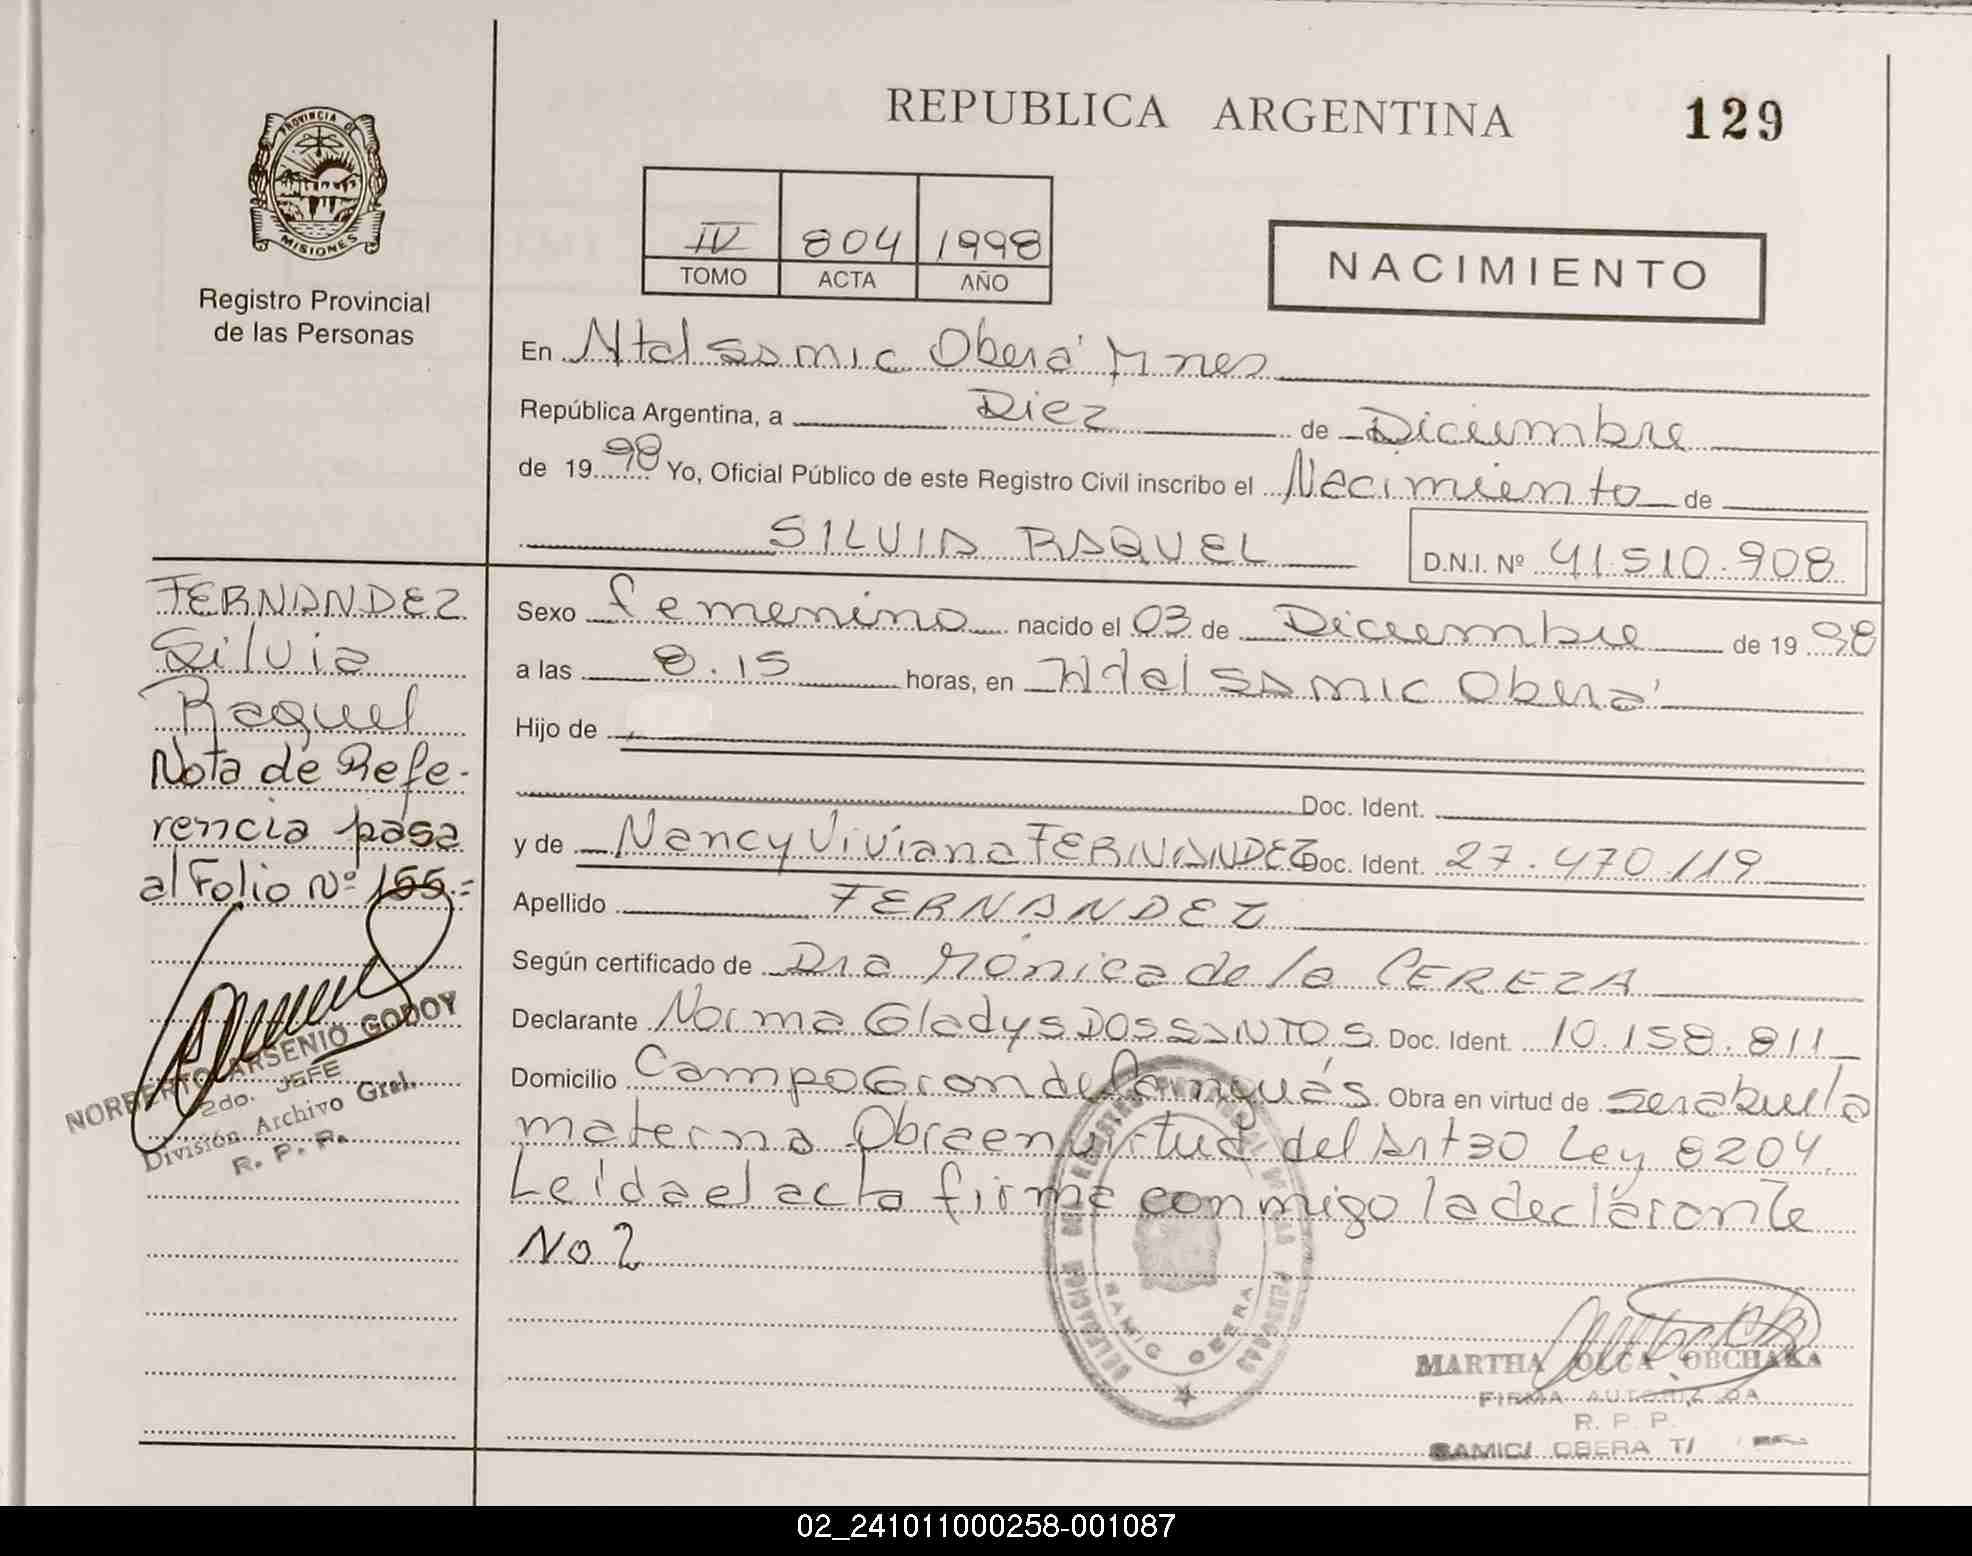 REPUBLICA ARGENTINA
129
PROVINCIA DE
MISIONES
Registro Provincial
de las Personas
IV 804 1998
TOMO ACTA AÑO
NACIMIENTO
En Htal Samic Oberá Mnes
República Argentina, a Diez de Diciembre
de 1998 Yo, Oficial Público de este Registro Civil inscribo el Nacimiento de
SILVIA RAQUEL D.N.I. Nº 41.510.908
Sexo femenino nacido el 03 de Diciembre de 1998
a las 8.15 horas, en Htal Samic Oberá
Hijo de
Doc. Ident.
y de Nancy Viviana FERNANDEZ Doc. Ident. 27.470.119
Apellido FERNANDEZ
Según certificado de Dra Mónica de la CEREZA
Declarante Norma Gladys DOS SANTOS Doc. Ident. 10.158.811
Domicilio Campo Grande Cainguás Obra en virtud de ser abuela
materna Obra en virtud del Art 30 Ley 8204
Leida el acta firma conmigo la declarante
No 2
FERNANDEZ
Silvia
Raquel
Nota de Refe-
rencia pasa
al Folio Nº 155.=
NORBERTO ARSENIO GODOY
2do. JEFE
División Archivo Gral.
R. P. P.
DELEGACION DEL REGISTRO PROVINCIAL DE LAS PERSONAS
SAMIC OBERA
MARTHA OLGA OBCHAKA
FIRMA AUTORIZADA
R. P. P.
SAMIC/ OBERA
02_241011000258-001087